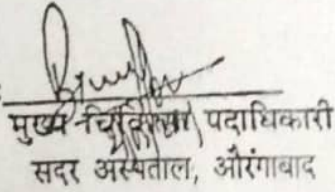 मुख्य चिकित्सा पदाधिकारी
सदर अस्पताल, औरंगाबाद